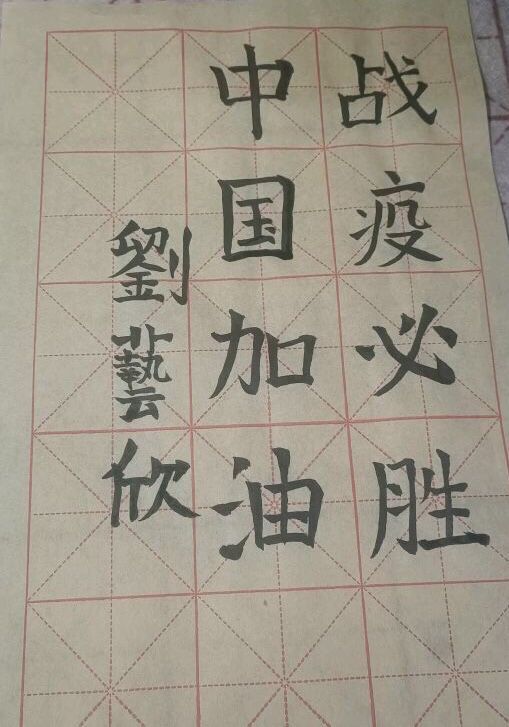 战疫必胜
中国加油
劉藝欣